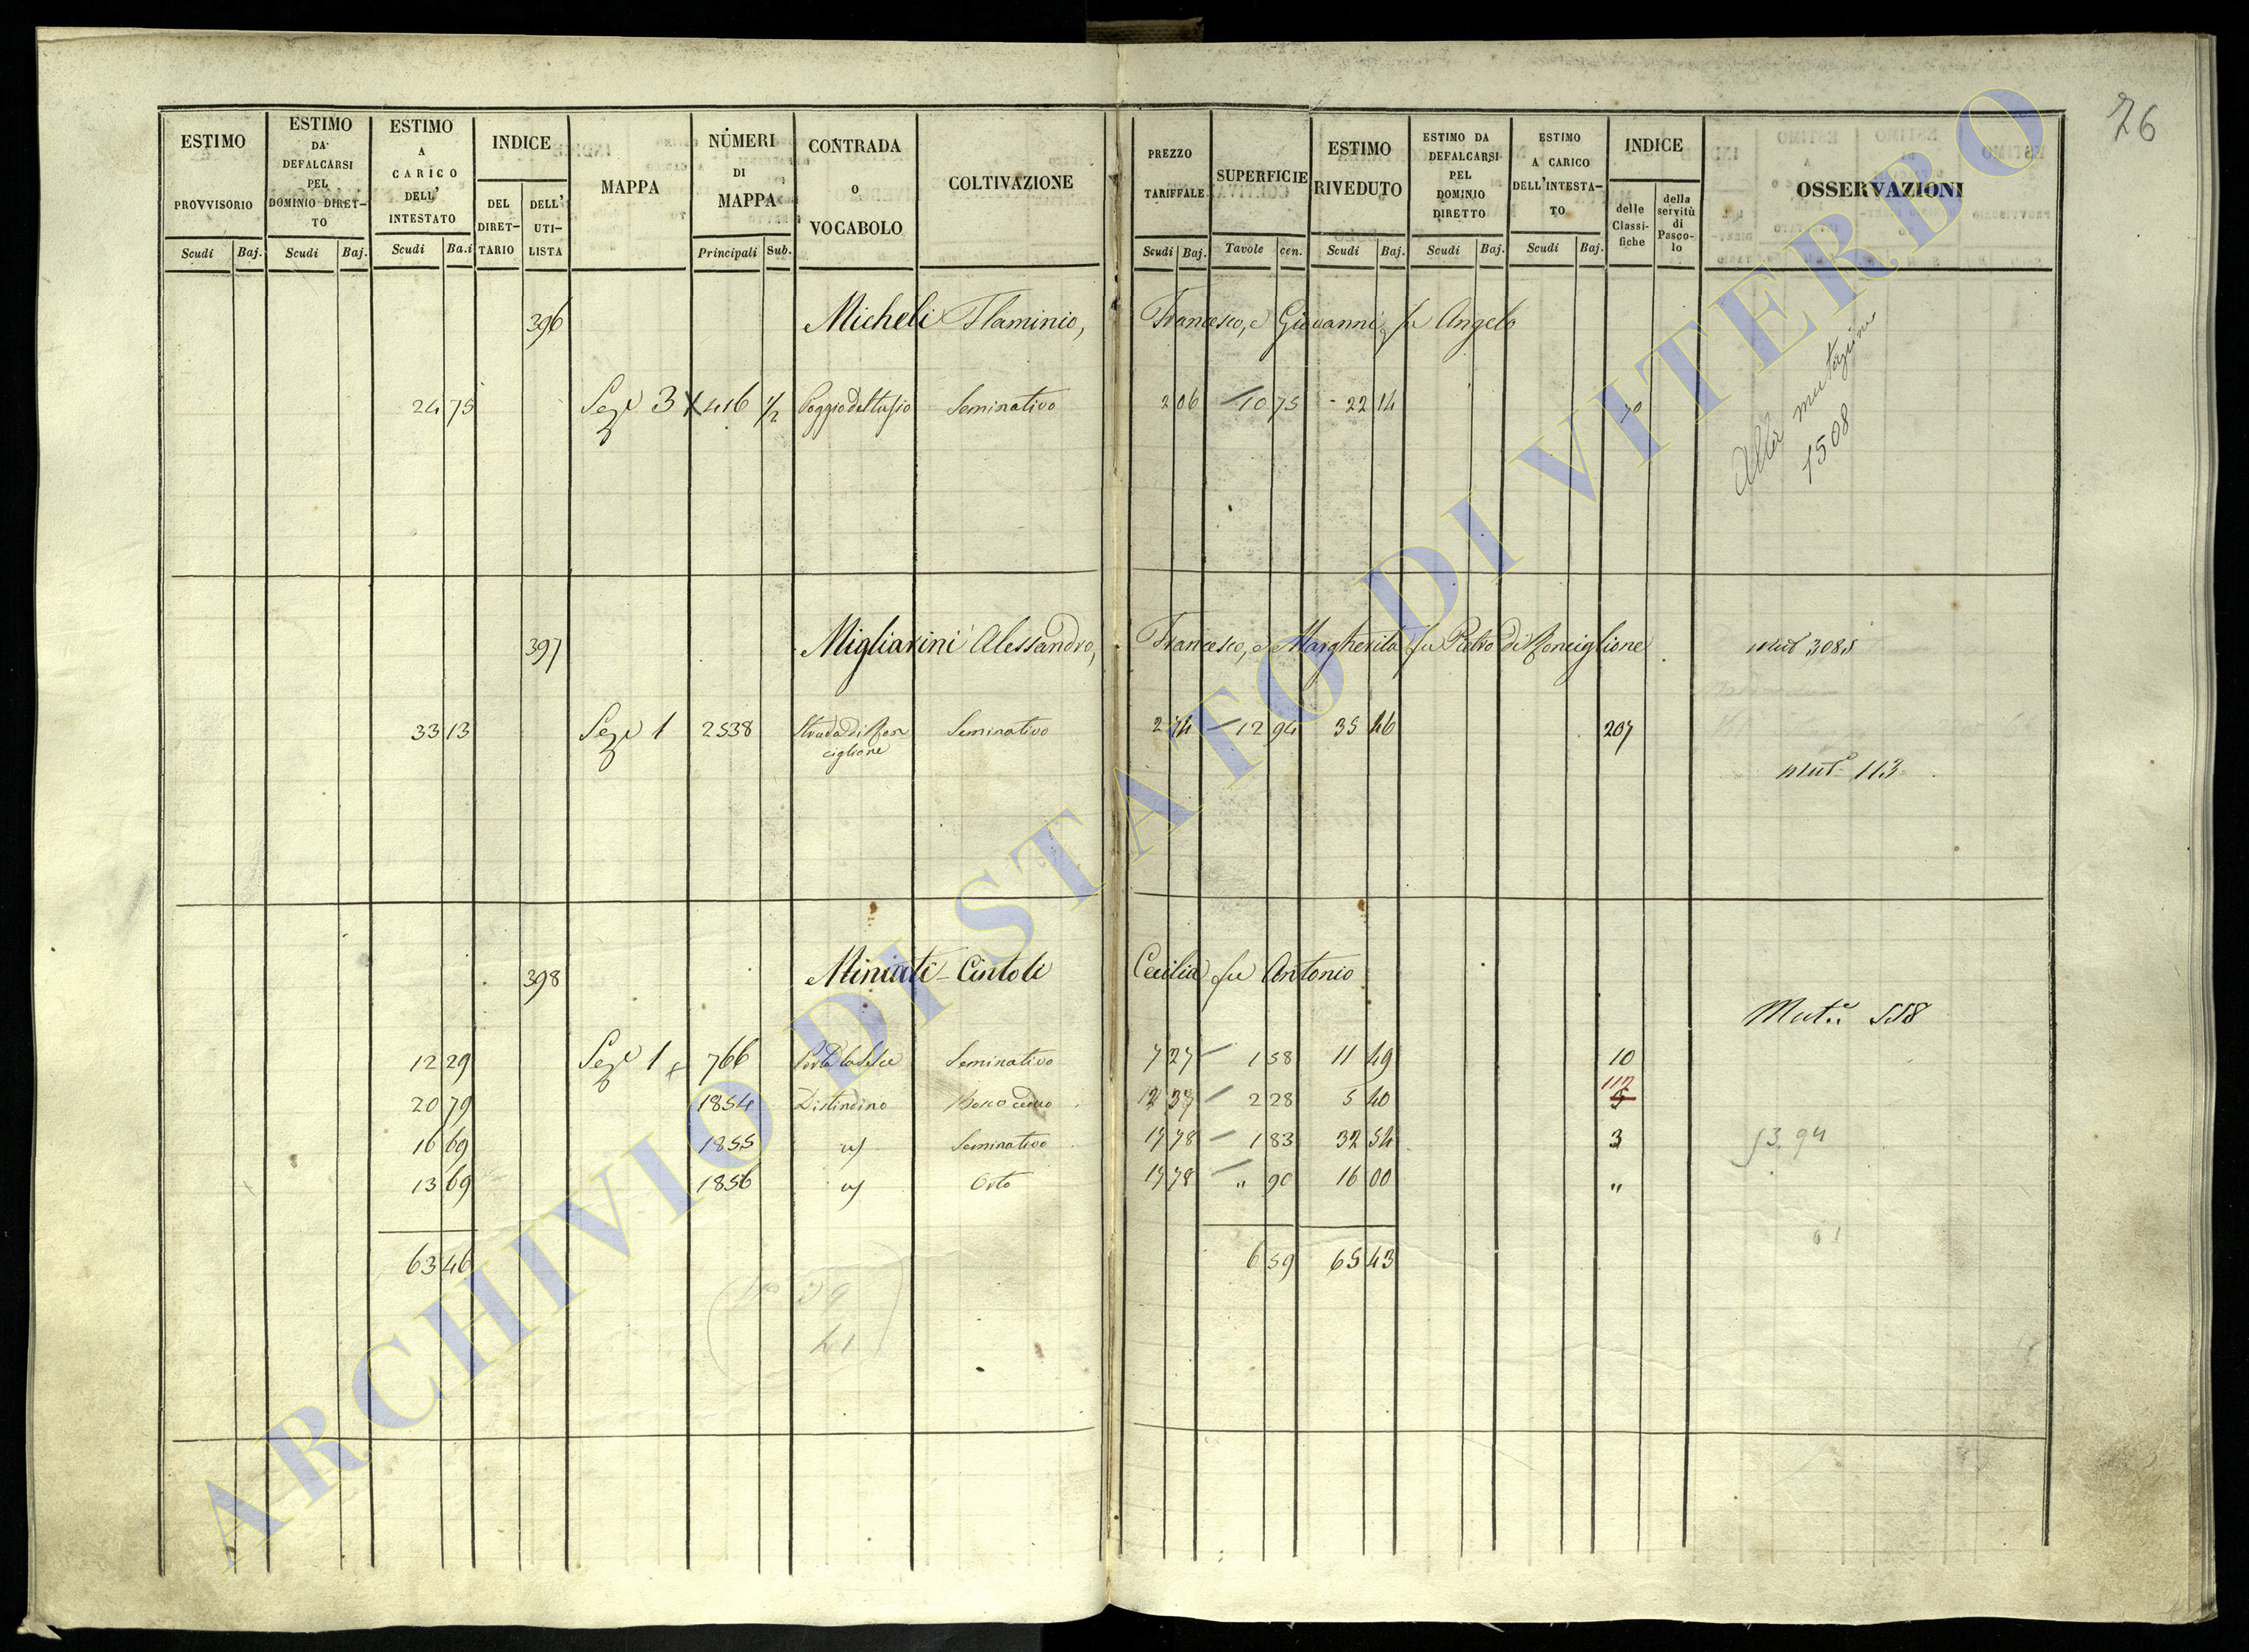 76
ESTIMO PROVVISORIO
ESTIMO DA DEFALCARSI PEL DOMINIO DIRET-TO
ESTIMO A CARICO DELL' INTESTATO
INDICE
DEL DIRET-TARIO
DELL' UTI-LISTA
MAPPA
NUMERI DI MAPPA
CONTRADA O VOCABOLO
COLTIVAZIONE
PREZZO TARIFFALE
SUPERFICIE
ESTIMO RIVEDUTO
ESTIMO DA DEFALCARSI PEL DOMINIO DIRETTO
ESTIMO A CARICO DELL'INTESTA-TO
INDICE
delle Classi-fiche
della servitù di Pasco-lo
OSSERVAZIONI
Scudi Baj. Scudi Baj. Scudi Ba.i Principali Sub. Scudi Baj. Tavole cen. Scudi Baj. Scudi Baj. Scudi Baj.
396 Micheli Flaminio, Francesco, e Giovanni fu Angelo
24 75 Sez.e 3 X 416 1/2 Seminativo 2 06 10 75 22 14 70
Alla mutazione
1508
397 Migliarini Alessandro, Francesco, e Margherita fu Pietro di Ronciglione mut 3085
33 13 Sez.e 1 2538 Strada di Ron
ciglione Seminativo 2 74 12 94 35 46 207
Mut. 113
398 Miniati-Cintoli Cecilia fu Antonio
Mut.e 558
12 29 Sez.e 1 766 Seminativo 7 27 1 58 11 49 10
112
20 79 1854 Bosco ceduo 2 28 5 40 5
16 69 1855 Seminativo 17 78 1 83 32 54 3
13 69 1856 Orto 17 78 " 90 16 00 "
53 94
63 46 6 59 65 43
ARCHIVIO DI STATO DI VITERBO